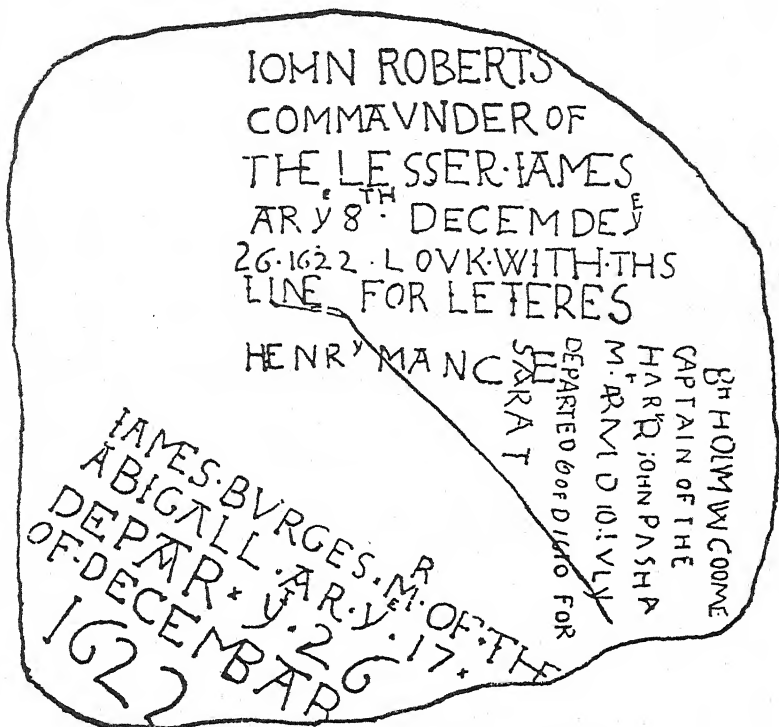 IOHN ROBERTS
COMMAVNDER OF
THE LESSER·IAMES
AR yE 8TH· DECEM DE yE
26·1622·LOVK·WITH·THS
LINE FOR LETERES
HENRY MANCE
8TH HOLMWCOOME
CAPTAIN OF THE
HART R IOHN PASHA
M· ARM D 10·IVLY
DEPARTED 6 OF D 1610 FOR
SARAT
IAMES·BVRGES·MR·OF·THE
ABIGALL·AR·yE·17·
DEPAR· yE·26
OF·DECEMBAR
1622